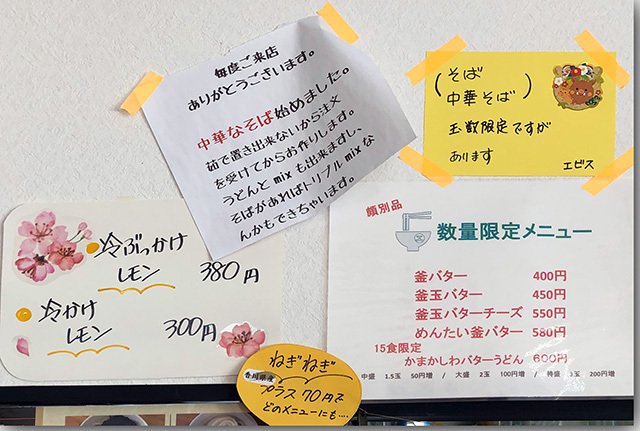 毎度ご来店
ありがとうございます。
中華なそば始めました。
茹で置き出来ないから注文
を受けてからお作りします。
うどんとmixも出来ますし、
そばがあればトリプルmixな
んかもできちゃいます。
(そば
中華そば)
玉数限定ですが
あります
エビス
冷ぶっかけ
レモン 380円
冷かけ
レモン 300円
顔別品
数量限定メニュー
釜バター 400円
釜玉バター 450円
釜玉バターチーズ 550円
めんたい釜バター 580円
15食限定
かまかしわバターうどん 600円
中盛 1.5玉 50円増 / 大盛 2玉 100円増 / 特盛 3玉 200円増
ねぎねぎ
香川県産
プラス70円で
どのメニューにも....